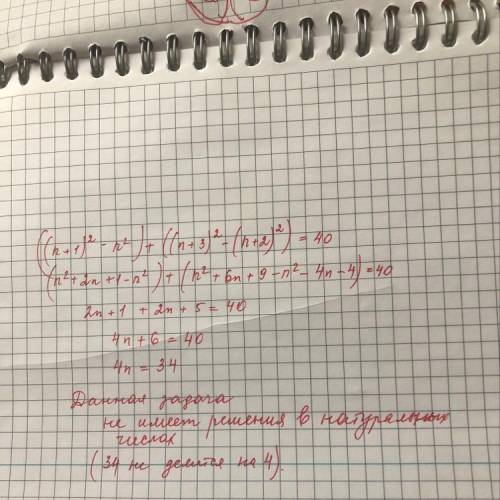 ((n+1)² - n²) + ((n+3)² - (n+2)²) = 40
(n² + 2n + 1 - n²) + (n² + 6n + 9 - n² - 4n - 4) = 40
2n + 1 + 2n + 5 = 40
4n + 6 = 40
4n = 34
Данная задача
не имеет решения в натуральных
числах
(34 не делится на 4).